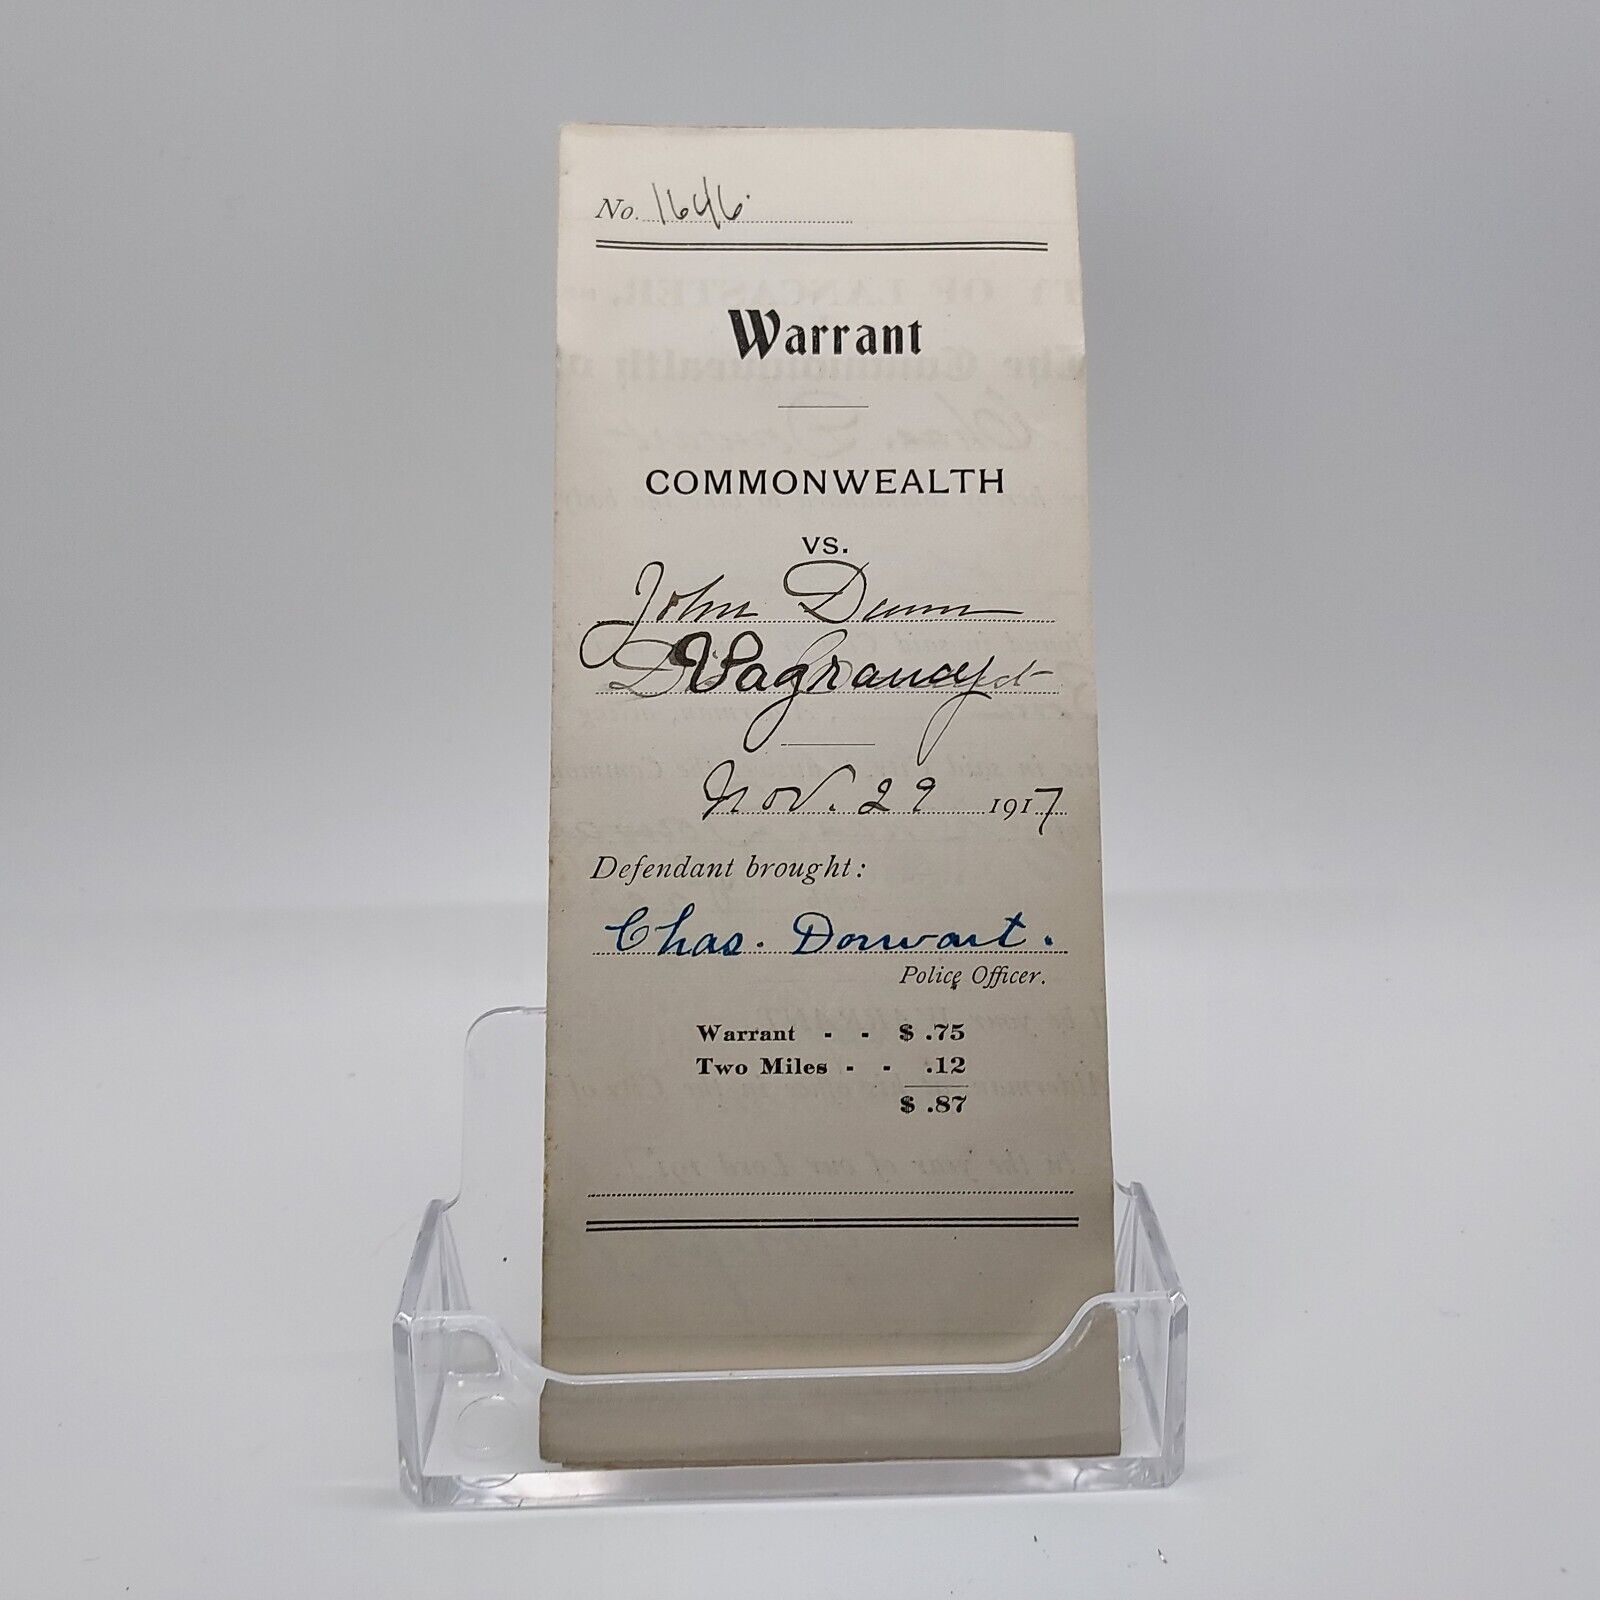 No. 1646.
Warrant
COMMONWEALTH
vs.
John Dunn
Vagrancy
Nov. 29 1917
Defendant brought:
Chas. Dorwart.
Police Officer.
Warrant - - $ .75
Two Miles - - .12
$ .87